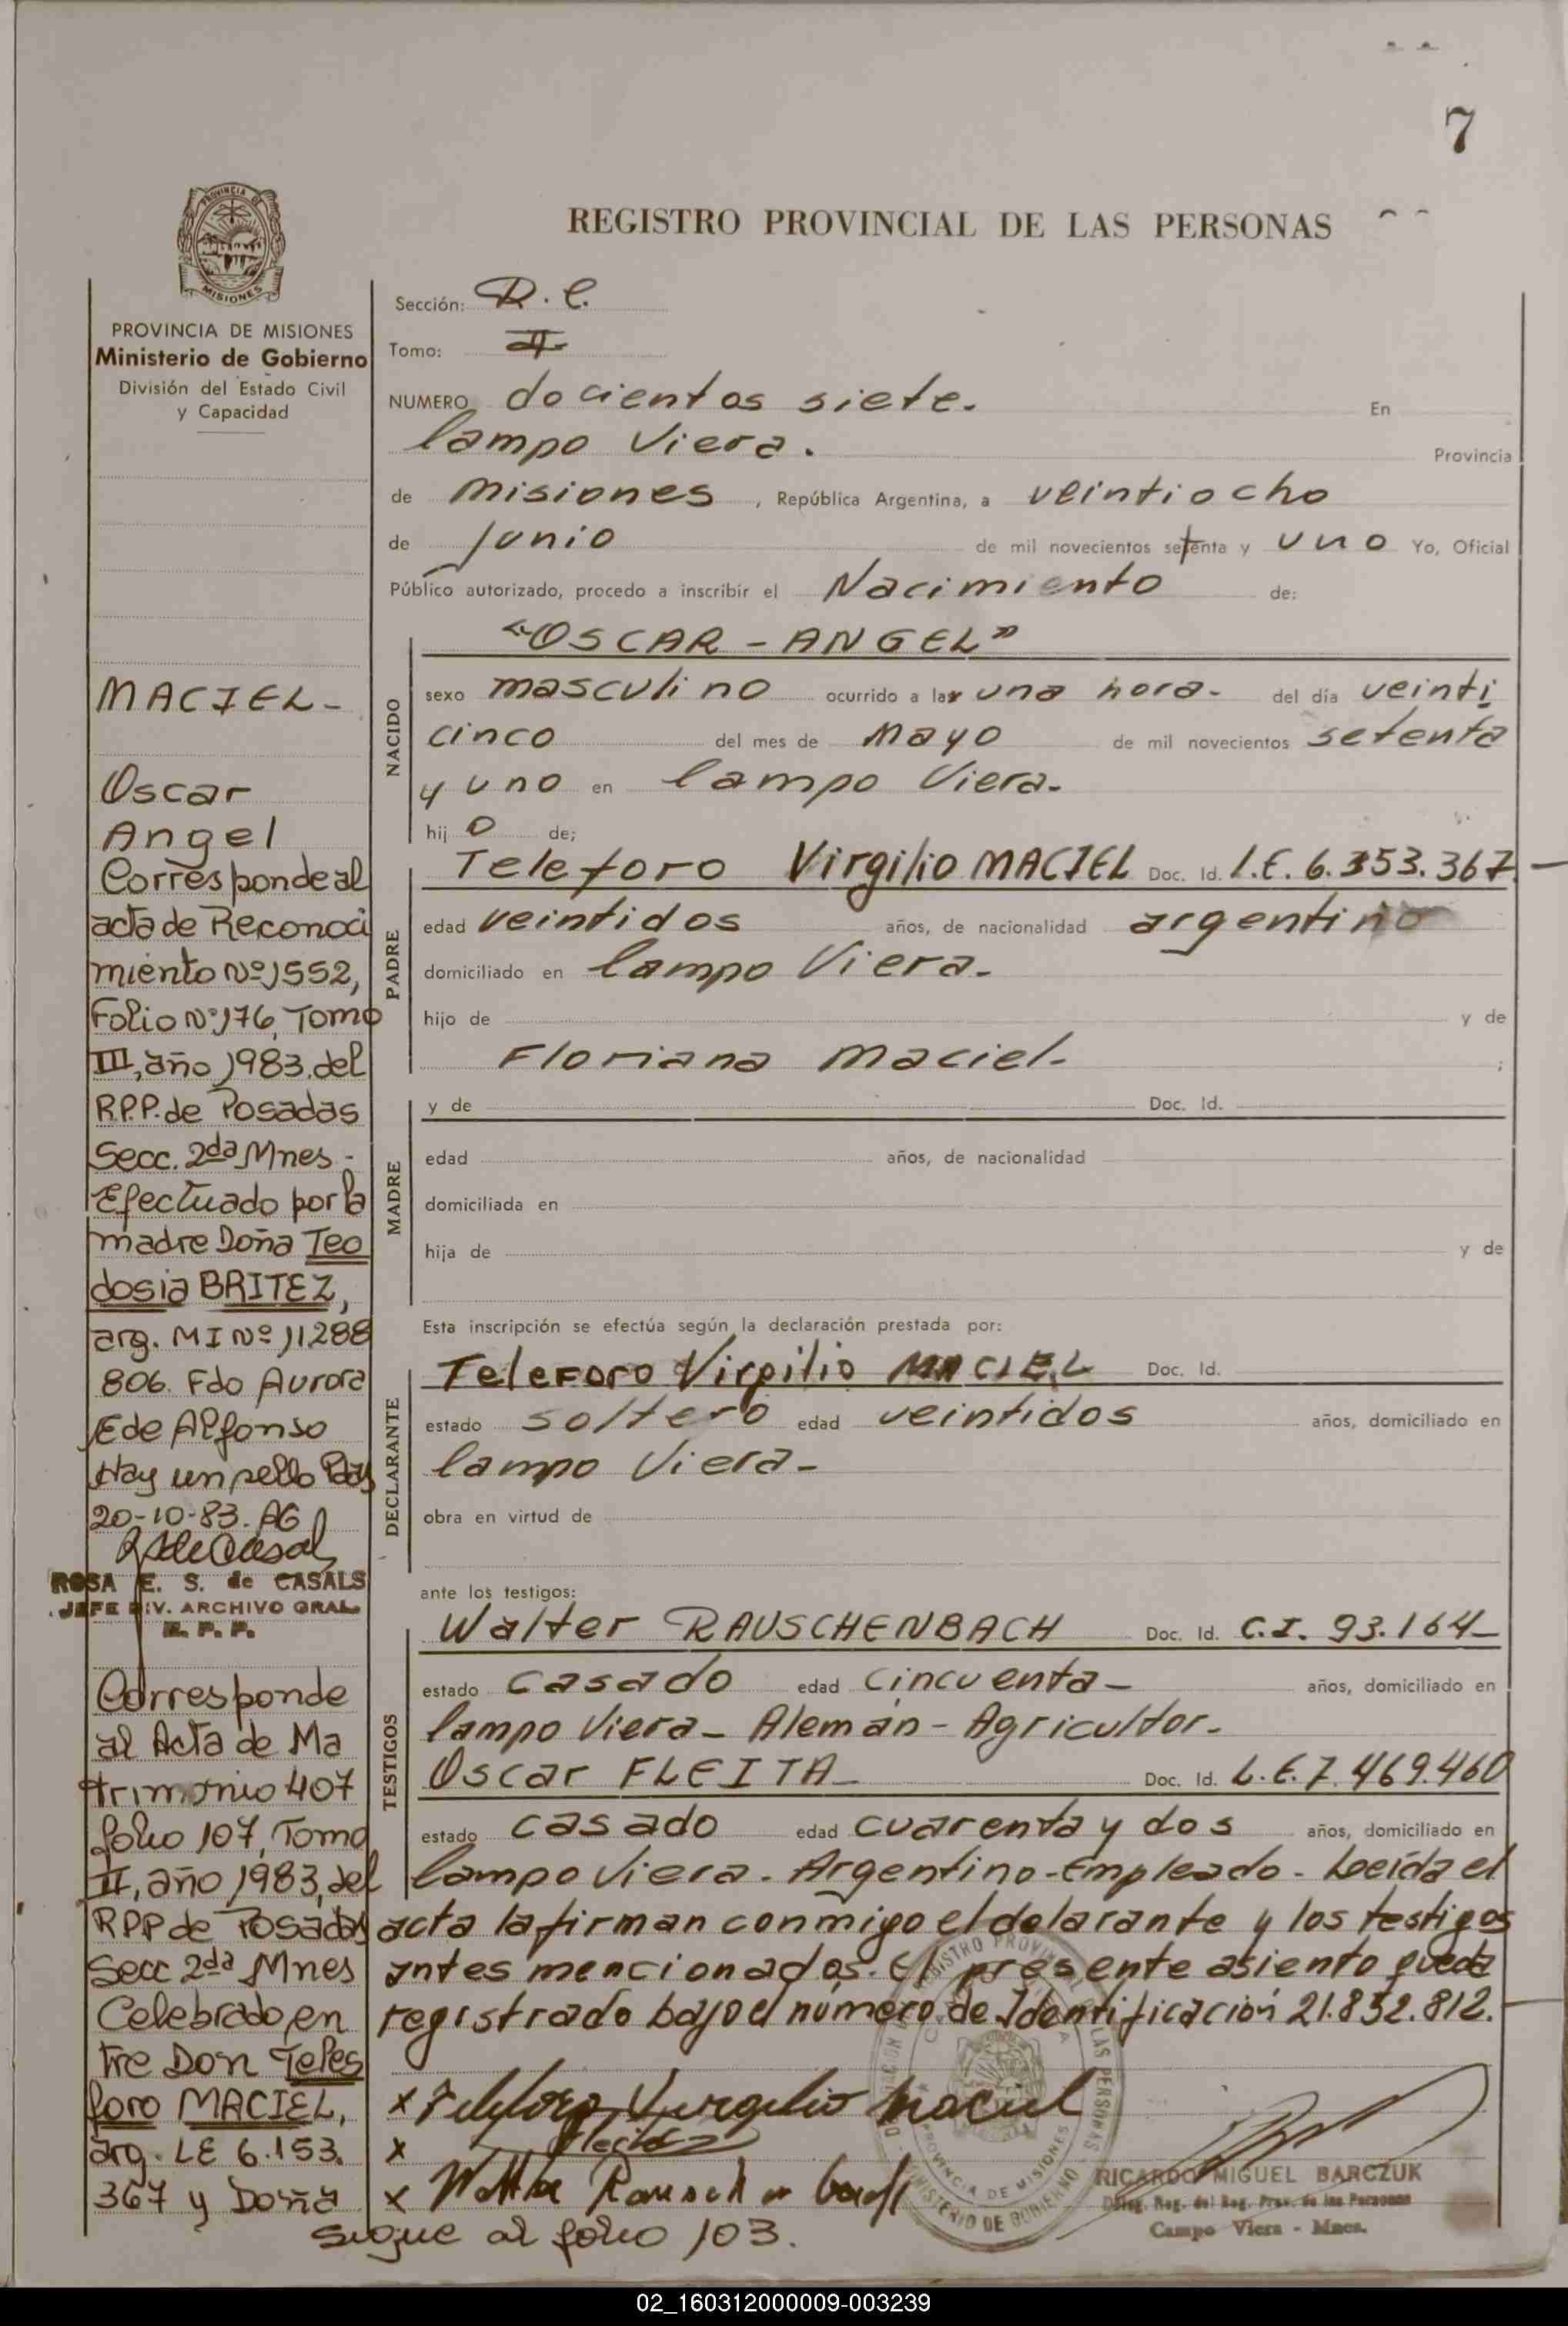 7
REGISTRO PROVINCIAL DE LAS PERSONAS
PROVINCIA DE
MISIONES
PROVINCIA DE MISIONES
Ministerio de Gobierno
División del Estado Civil
y Capacidad
MACIEL-
Oscar
Angel
Corresponde al
acta de Reconoci
miento Nº 1552,
Folio Nº 176, Tomo
III, año 1983. del
R.P.P. de Posadas
Secc. 2da Mnes.-
Efectuado por la
madre Doña Teo
dosia BRITEZ,
arg. M I Nº 11.288
806. Fdo Aurora
E de Alfonso
Hay un sello Pdas
20-10-83. AG
ROSA E. S. de CASALS
JEFE DIV. ARCHIVO GRAL
R. P. P.
Corresponde
al Acta de Ma
trimonio 407
folio 107, Tomo
II, año 1983, del
RPP de Posadas
Secc 2da Mnes
Celebrado en
tre Don Teles
foro MACIEL,
arg. LE 6.153.
367 y Doña
sigue al folio 103.
Sección: R. C.
Tomo: II
NUMERO docientos siete. En
Campo Viera. Provincia
de Misiones, República Argentina, a veintiocho
de Junio de mil novecientos setenta y uno Yo, Oficial
Público autorizado, procedo a inscribir el Nacimiento de:
"OSCAR - ANGEL"
NACIDO
sexo masculino ocurrido a las una hora- del día veinti
cinco del mes de Mayo de mil novecientos setenta
y uno en Campo Viera-
hij o de;
PADRE
Teleforo Virgilio MACIEL Doc. Id. L.E. 6.353.367.-
edad veintidos años, de nacionalidad argentino
domiciliado en Campo Viera-
hijo de y de
Floriana Maciel- ;
MADRE
y de Doc. Id.
edad años, de nacionalidad
domiciliada en
hija de y de
Esta inscripción se efectúa según la declaración prestada por:
DECLARANTE
Teleforo Virgilio MACIEL Doc. Id.
estado soltero edad veintidos años, domiciliado en
Campo Viera-
obra en virtud de
ante los testigos:
TESTIGOS
Walter RAUSCHENBACH Doc. Id. C.I. 93.164-
estado casado edad cincuenta- años, domiciliado en
Campo Viera- Alemán - Agricultor-
Oscar FLEITA- Doc. Id. L.E. 7.469.460
estado casado edad cuarenta y dos años, domiciliado en
Campo Viera. Argentino-Empleado- Leída el
acta la firman conmigo el delarante y los testigos
antes mencionados. El presente asiento queda
registrado bajo el número de Identificación 21.852.812.-
x Telesforo Virgilio Maciel
x Fleita
x Walter Rauschenbach
PROVINCIA DE MISIONES
MINISTERIO DE GOBIERNO
RICARDO MIGUEL BARCZUK
Deleg. Reg. del Reg. Prov. de las Personas
Campo Viera - Mnes.
02_160312000009-003239